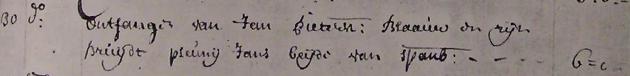 30 do: Ontfangen van Jan Pieters: Blaauw en zijn
bruijdt pleunij Jans beijde van spanb: - - - - 6 = 0